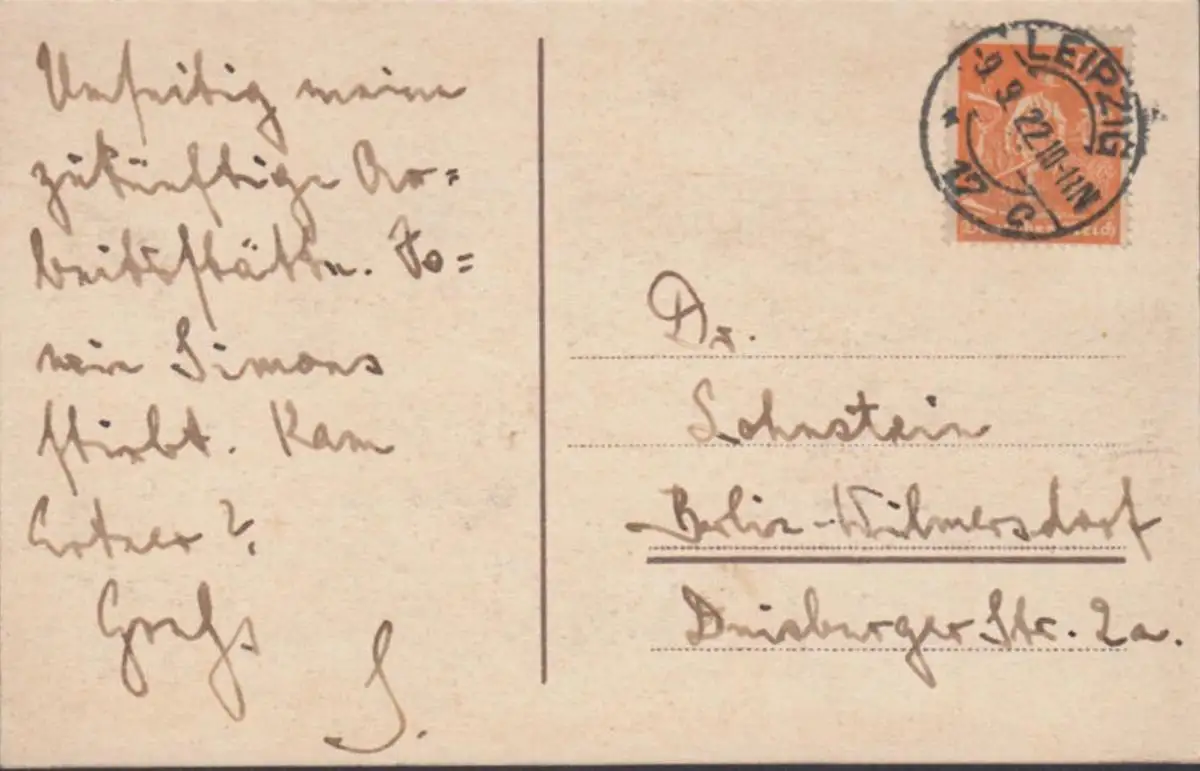 Umseitig meine
zukünftige Ar=
beitsstätte. So=
wie Simons
stirbt. Kam
Ertner?
Gruß
S.
LEIPZIG
9.9.22.10-11N
17 c
Deutsches Reich
Dr.
Lohnstein
Berlin-Wilmersdorf
Duisburger Str. 2a.